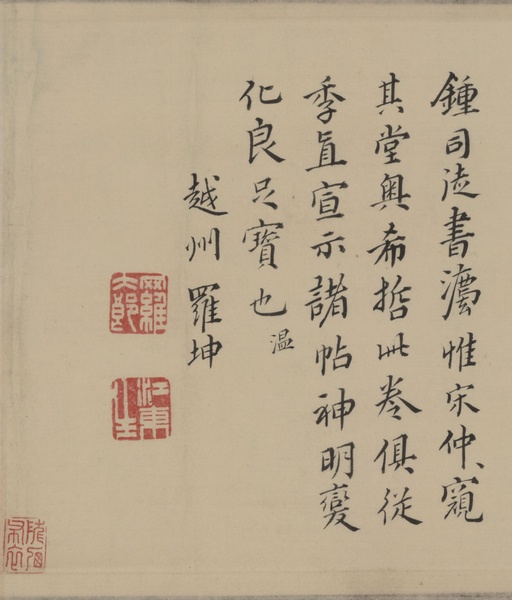 鍾司徒書灋惟宋仲、窺
其堂奧希哲此卷俱從
季直宣示諸帖神明變
化良足寶也
温
越州羅坤
羅
江東